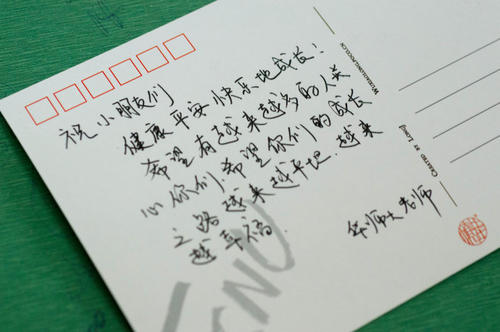 祝小朋友们
健康平安快乐地成长!
希望有越来越多的人关
心你们,希望你们的成长
之路越来越平坦.越来
越幸福.
华师大老师
CREATED BY